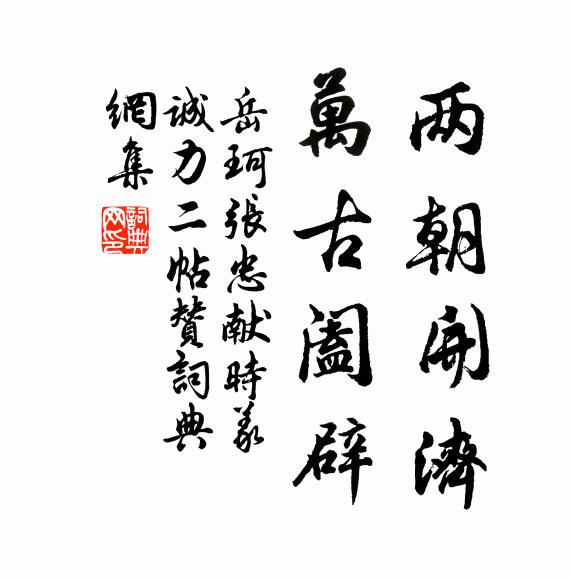 两朝開濟
萬古闔辟
岳珂張忠献時羕
诚力二帖賛詞典
網集
詞典网印